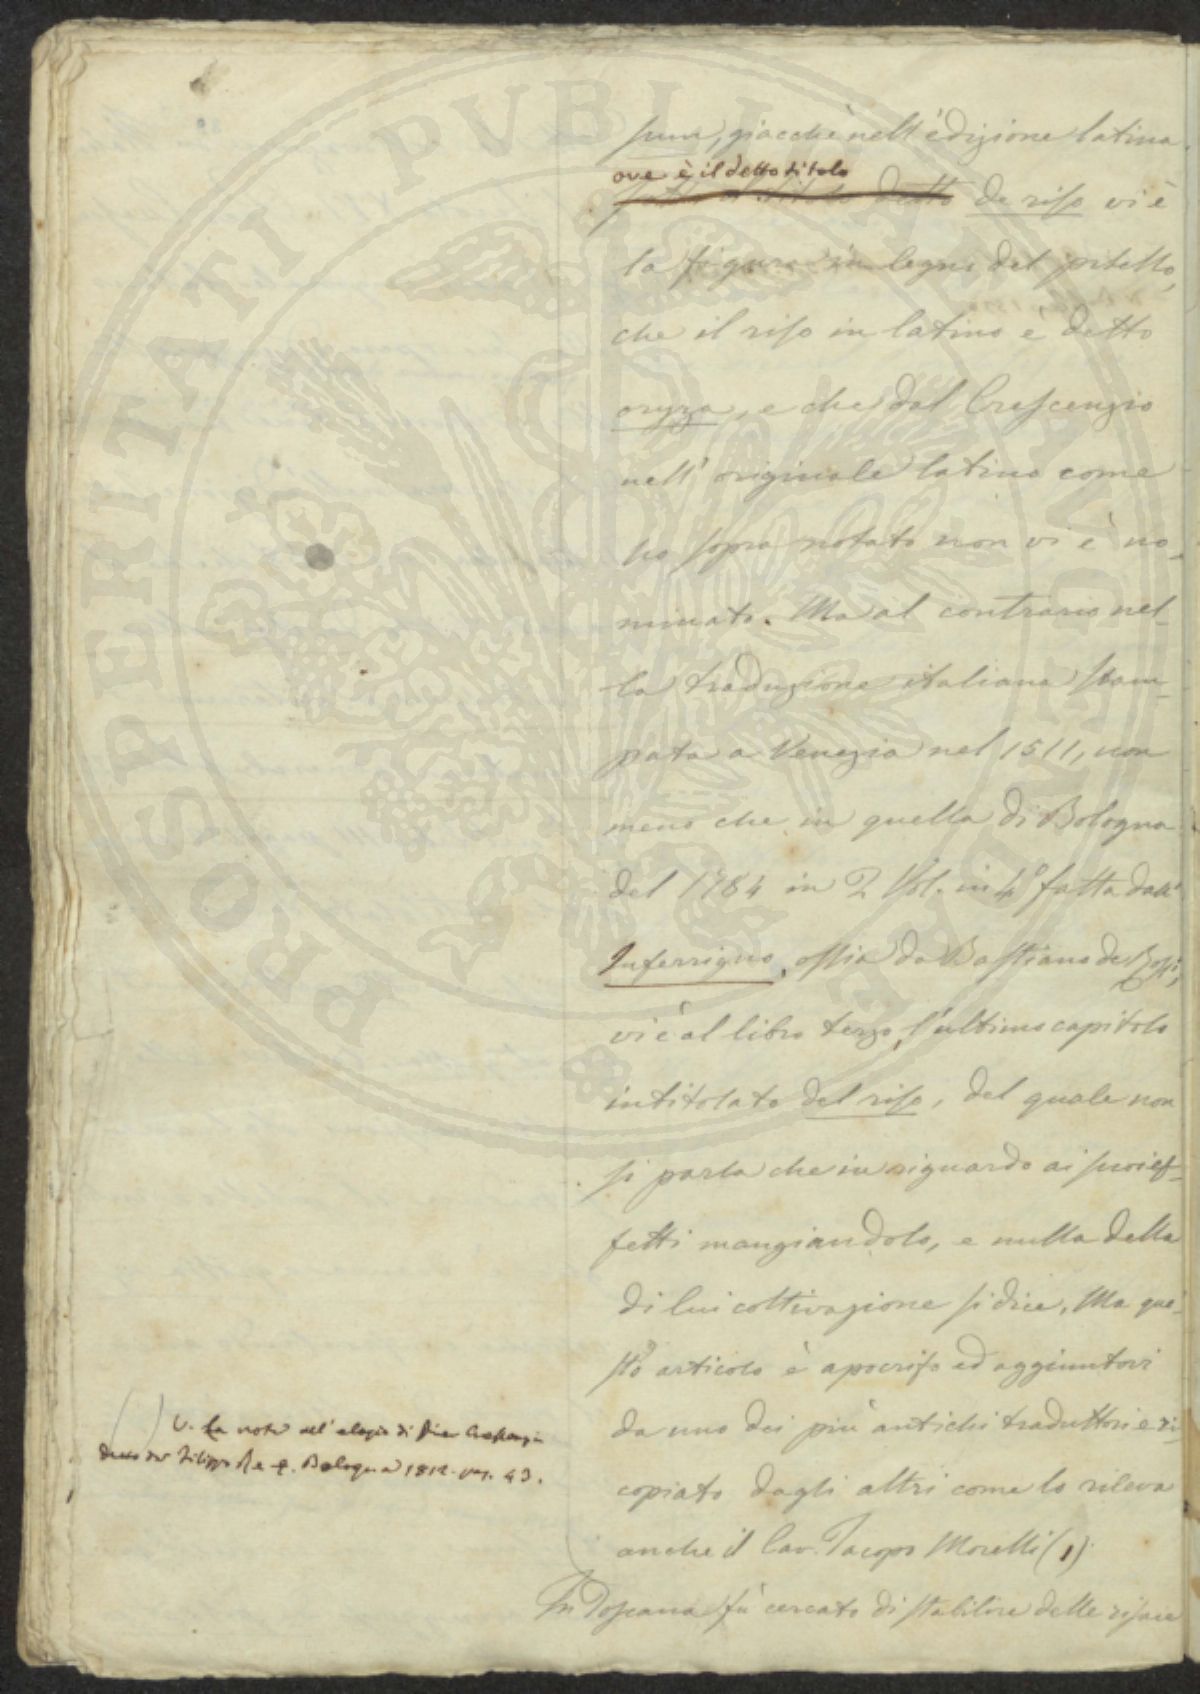 sum, giacchè nell'edizione latina
ove è il detto titolo
detto de riso vi è
la figura in legno del pisello,
che il riso in latino è detto
oryza, e che dal Crescenzio
nell'originale latino come
ho sopra notato non vi è no-
minato. Ma al contrario nel-
la traduzione italiana stam-
pata a Venezia nel 1511, non
meno che in quella di Bologna
del 1784 in 2 Vol. in 4º fatta dall'
Inferrigno, ossia da Bastiano de Rossi,
vi è al libro terzo, l'ultimo capitolo
intitolato del riso, del quale non
si parla che in riguardo ai suoi ef-
fetti mangiandolo, e nulla della
di lui coltivazione si dice. Ma que-
sto articolo è apocrifo ed aggiuntovi
da uno dei più antichi traduttori e ri-
copiato dagli altri come lo rileva
anche il Cav. Jacopo Morelli (1)
In Toscana fù cercato di stabilire delle risaie
( ) V. la nota all'elogio di Pier Crescenzi
del Filippo Re Bologna 1812. pag. 43.
PROSPERITATI PVBLICAE AVGENDAE